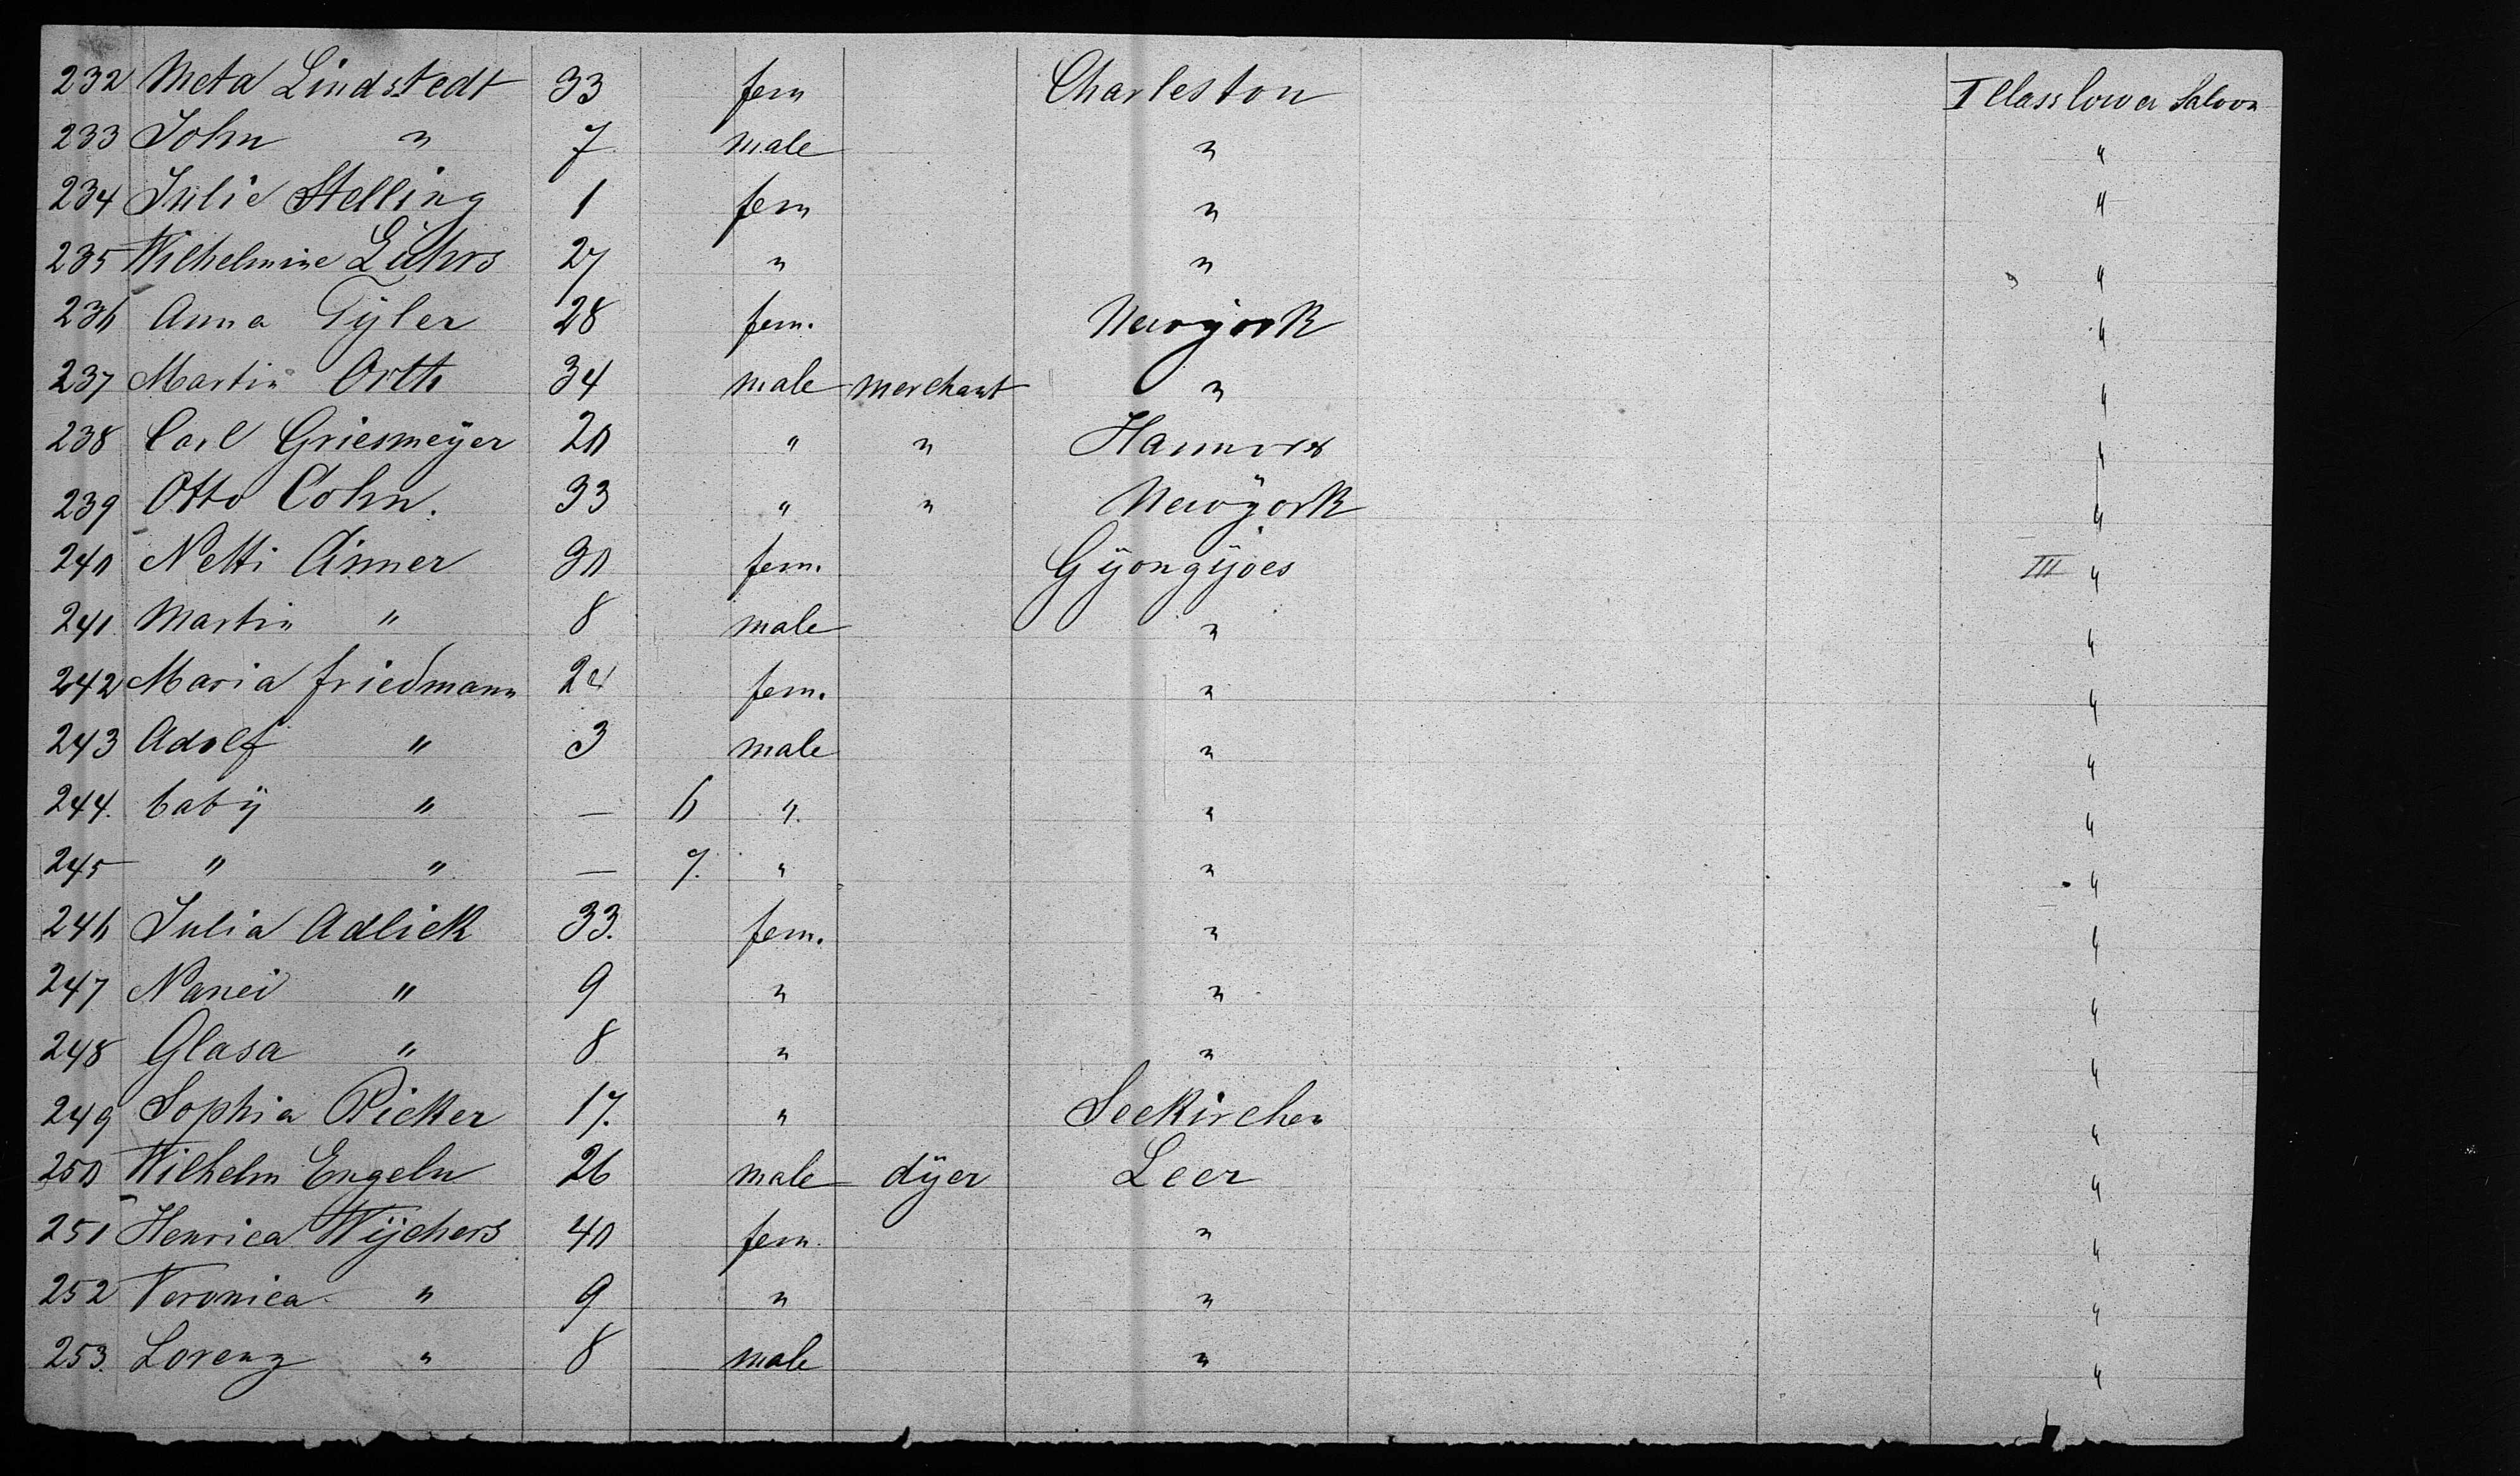 232 Meta Lindstedt 33 fem Charleston I Class lower Saloon
233 John " 7 male " "
234 Julie Stelling 1 fem " "
235 Wilhelmine Lührs 27 " " "
236 Anna Tÿler 28 fem. Newÿork "
237 Martin Orth 34 male merchant " "
238 Carl Griesmeÿer 20 " " Hannover "
239 Otto Cohn. 33 " " Newÿork "
240 Netti 30 fem. Gÿongÿoes III "
241 Martin " 8 male " "
242 Maria Friedmann 24 fem. " "
243 Adolf " 3 male " "
244. babÿ " — 6 " " "
245 " " — 7. " " "
246 Julia Adlick 33. fem. " "
247 Nanei " 9 " " "
248 Glasa " 8 " " "
249 Sophia Ricker 17. " Seekirchen "
250 Wilhelm Engeln 26 male dÿer Leer "
251 Henrica Wÿchers 40 fem. " "
252 Veronica " 9 " " "
253. Lorenz " 8 male " "